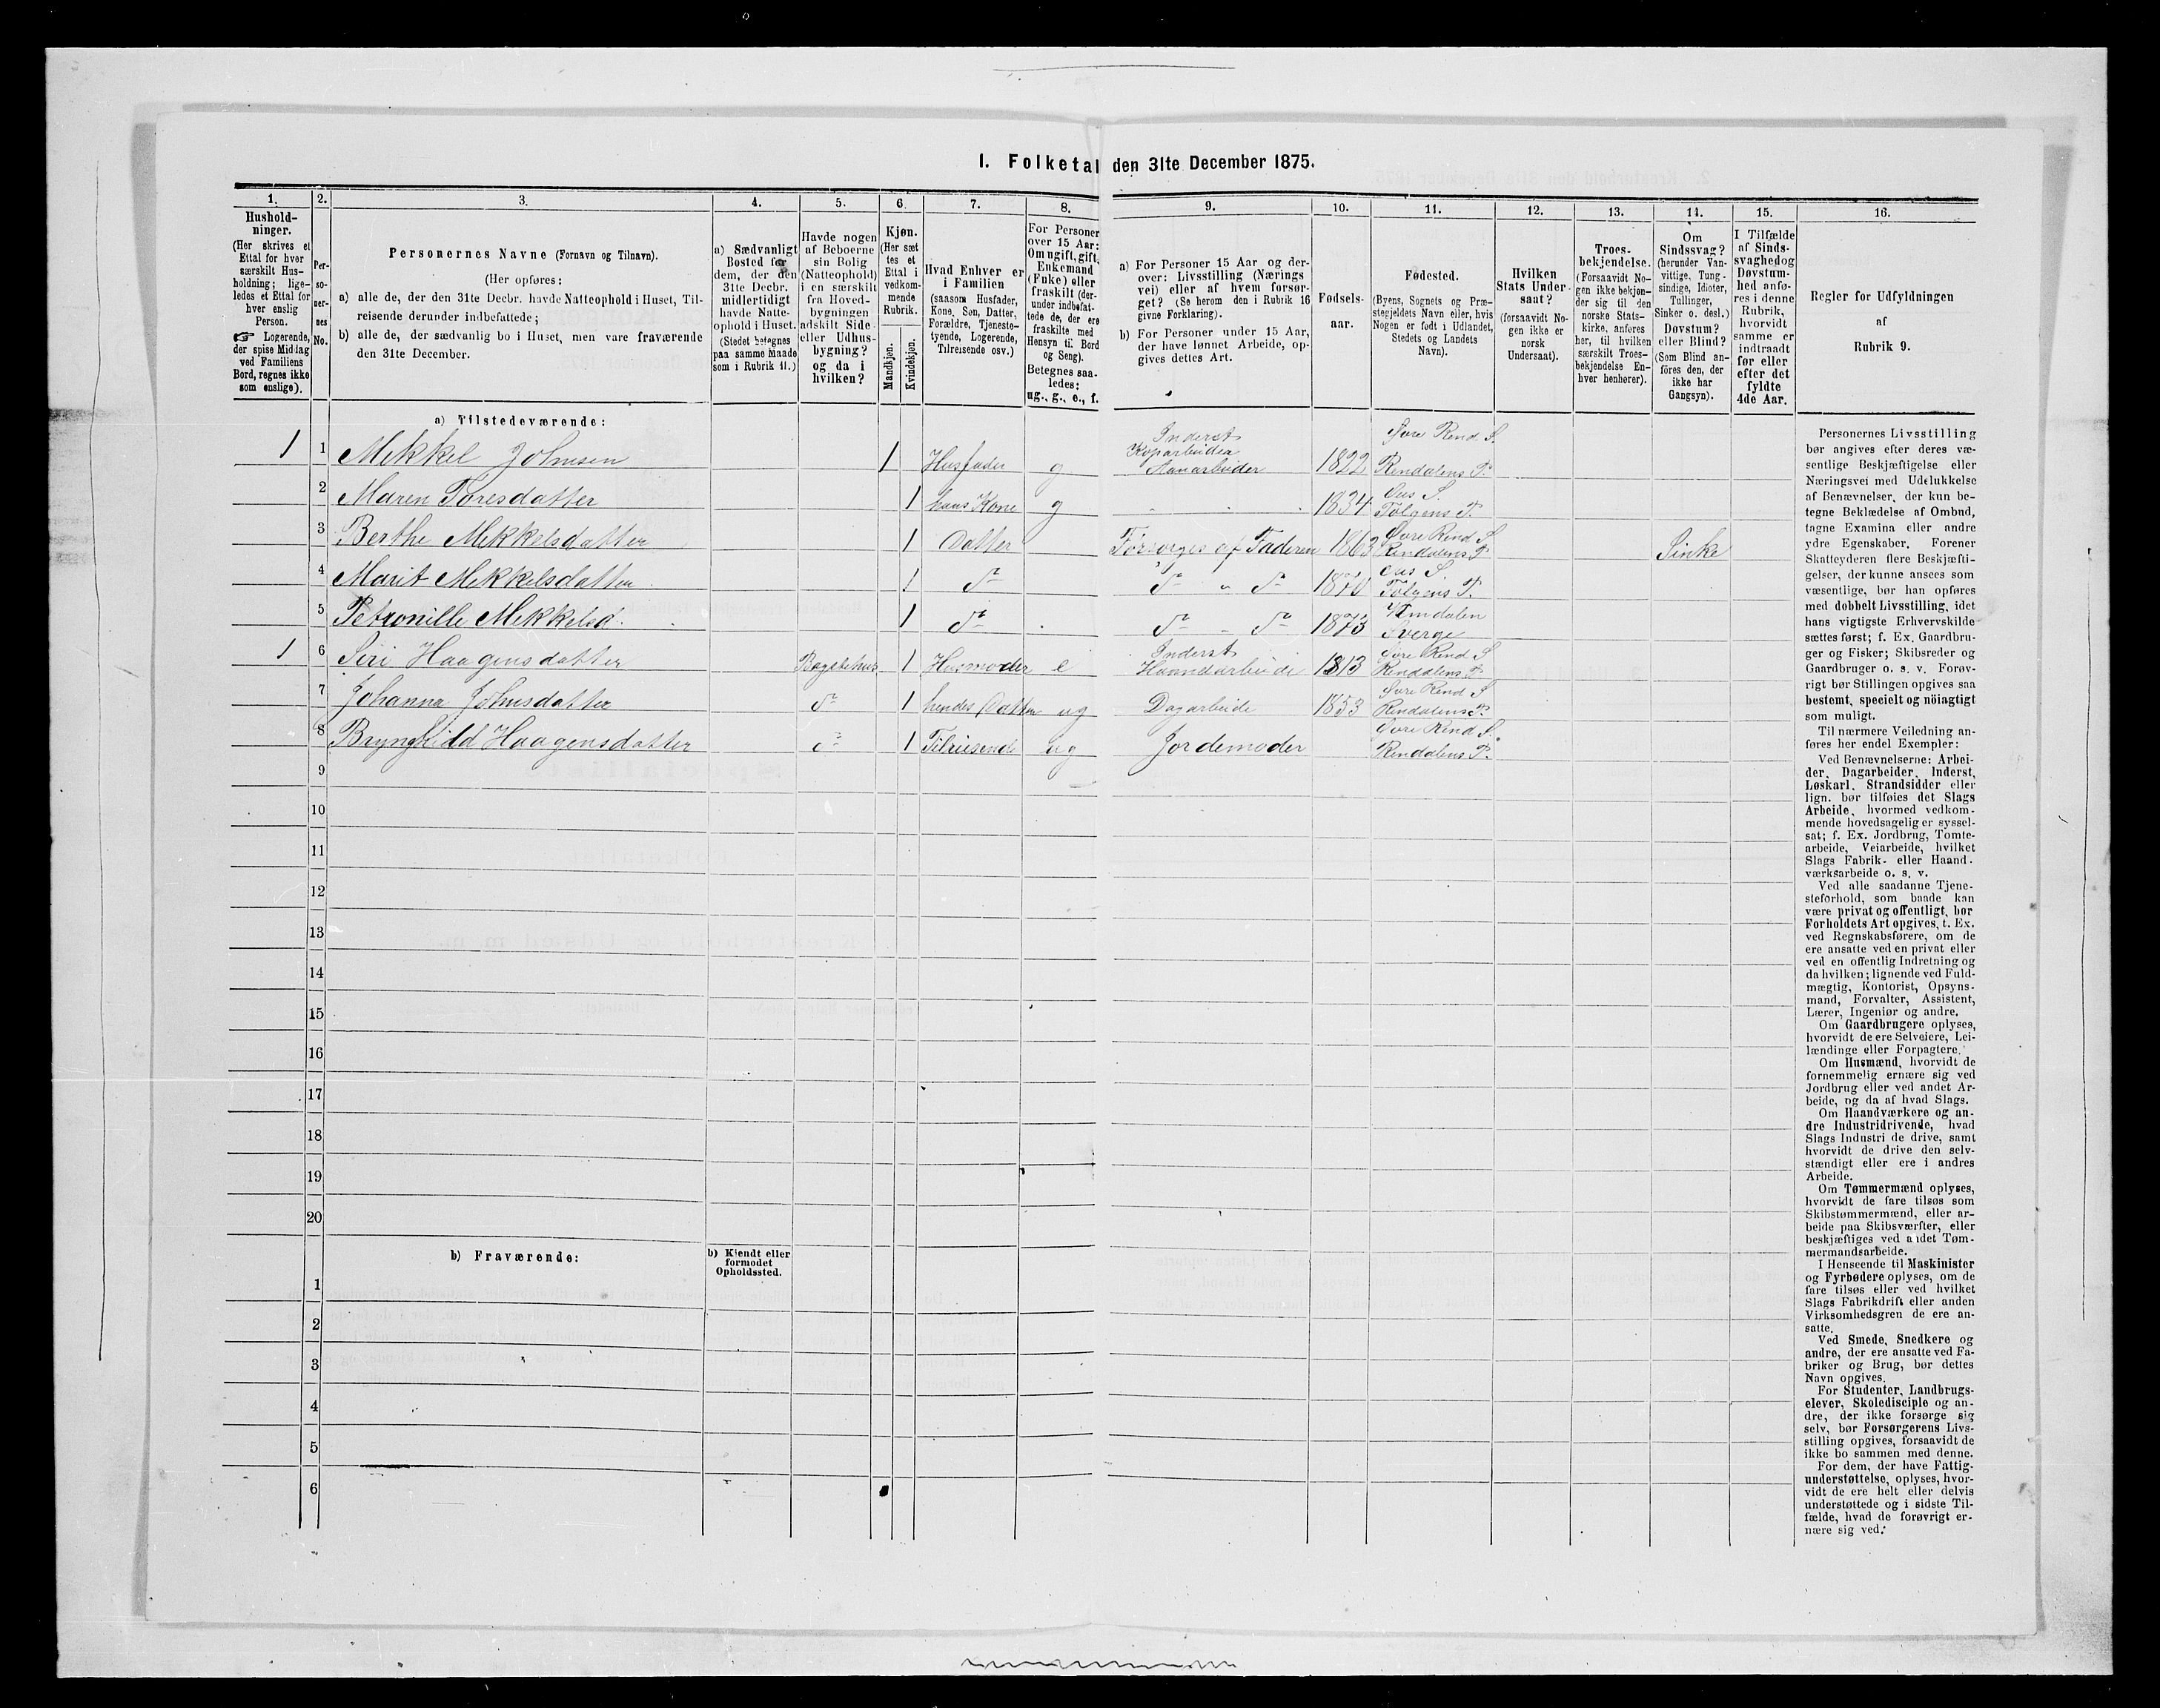 I. Folketal den 31te December 1875.
1.
Hushold-
ninger.
(Her skrives et
Ettal for hver
særskilt Hus-
holdning; lige-
ledes et Ettal for
hver enslig
Person.
☞ Logerende,
der spise Middag
ved Familiens
Bord, regnes ikke
som enslige).
2.
Per-
so-
ner-
nes
No.
3.
Personernes Navne (Fornavn og Tilnavn).
(Her opføres:
a) alle de, der den 31te Decbr. havde Natteophold i Huset, Til-
reisende derunder indbefattede;
b) alle de, der sædvanlig bo i Huset, men vare fraværende
den 31te December.
4.
a) Sædvanligt
Bosted for
dem, der den
31te Decbr.
midlertidigt
havde Natte-
ophold i Huset.
(Stedet betegnes
paa samme Maade
som i Rubrik 11.)
5.
Havde nogen
af Beboerne
sin Bolig
(Natteophold)
i en særskilt
fra Hoved-
bygningen
adskilt Side-
eller Udhus-
bygning?
og da i
hvilken?
6.
Kjøn.
(Her sæt
tes et
Ettal i
vedkom-
mende
Rubrik.
Mandkjøn.
Kvindekjøn.
7.
Hvad Enhver er
i Familien
(saasom Husfader,
Kone, Søn, Datter,
Forældre, Tjeneste-
tyende, Logerende,
Tilreisende osv.)
8.
For Personer
over 15 Aar:
Om ugift, gift,
Enkemand
(Enke) eller
fraskilt (der-
under indbefat-
tede de, der ere
fraskilte med
Hensyn til Bord
og Seng).
Betegnes saa-
ledes:
ug., g., e., f.
9.
a) For Personer 15 Aar og der-
over: Livsstilling (Nærings
vei) eller af hvem forsør-
get? (Se herom den i Rubrik 16
givne Forklaring).
b) For Personer under 15 Aar,
der have lønnet Arbeide, op-
gives dettes Art.
10.
Fødsels-
aar.
11.
Fødested.
(Byens, Sognets og Præ-
stegjeldets Navn eller, hvis
Nogen er født i Udlandet,
Stedets og Landets
Navn).
12.
Hvilken
Stats Under-
saat?
(forsaavidt No-
gen ikke er
norsk
Undersaat).
13.
Troes-
bekjendelse.
(Forsaavidt No-
gen ikke bekjen-
der sig til den
norske Stats-
kirke, anføres
her, til hvilken
særskilt Troes-
bekjendelse En-
hver henhører).
14.
Om
Sindssvag?
(herunder Van-
vittige, Tung-
sindige, Idioter,
Tullinger,
Sinker o. desl.)
Døvstum?
eller Blind?
(Som Blind an-
føres den, der
ikke har
Gangsyn).
15.
I Tilfælde
af Sinds-
svaghed og
Døvstum-
hed anfø-
res i denne
Rubrik,
hvorvidt
samme er
indtraadt
før eller
efter det
fyldte
4de Aar.
16.
Regler for Udfyldningen
af
Rubrik 9.
a) Tilstedeværende:
1 1 Mekkel Johnsen 1 Husfader g Inderst Aanarbeider 1822 Søre Rend. S. Rendalens P.
2 Maren Toresdatter 1 hans Kone g 1834 Ous S. Tolgens P.
3 Berthe Mekkelsdatter 1 Datter Forsørges af Faderen 1863 Søre Rend S Rendalens P Sinke
4 Marit Mekkelsdatter 1 do do " do 1870 Ous S Tolgens P.
5 Petronille Mekkelsd. 1 do do - do 1873 Sverge
1 6 Siri Haagensdatter 1 Husmoder e Inderst Haandarbeide 1813 Søre Rend S Rendalens P
7 Johanna Johnsdatter do 1 hendes Datter ug Dagarbeide 1853 Søre Rend S Rendalens P.
8 Brynghild Haagensdatter do 1 Tilreisende ug Jordemoder Søre Rend S. Rendalens P.
9
10
11
12
13
14
15
16
17
18
19
20
b) Fraværende:
b) Kjendt eller
formodet
Opholdssted.
1
2
3
4
5
6
Personernes Livsstilling
bør angives efter deres væ-
sentlige Beskjæftigelse eller
Næringsvei med Udelukkelse
af Benævnelser, der kun be-
tegne Beklædelse af Ombud,
tagne Examina eller andre
ydre Egenskaber. Forener
Skatteyderen flere Beskjæfti-
gelser, der kunne ansees som
væsentlige, bør han opføres
med dobbelt Livsstilling, idet
hans vigtigste Erhvervskilde
sættes først; f. Ex. Gaardbru-
ger og Fisker; Skibsreder og
Gaardbruger o. s. v. Forøv-
rigt bør Stillingen opgives saa
bestemt, specielt og nöiagtigt
som muligt.
Til nærmere Veiledning an-
føres her endel Exempler:
Ved Benævnelserne: Arbei-
der, Dagarbeider, Inderst,
Løskarl, Strandsidder eller
lign. bør tilføies det Slags
Arbeide, hvormed vedkom-
mende hovedsagelig er syssel-
sat; f. Ex. Jordbrug, Tomte-
arbeide, Veiarbeide, hvilket
Slags Fabrik- eller Haand-
værksarbeide o. s. v.
Ved alle saadanne Tjene-
steforhold, som baade kan
være privat og offentligt, bør
Forholdets Art opgives, t. Ex.
ved Regnskabsførere, om de
ere ansatte ved en privat eller
ved en offentlig Indretning og
da hvilken; lignende ved Fuld-
mægtig, Kontorist, Opsyns-
mand, Forvalter, Assistent,
Lærer, Ingeniør og andre.
Om Gaardbrugere oplyses,
hvorvidt de ere Selveiere, Lei-
lændinge eller Forpagtere.
Om Husmænd, hvorvidt de
fornemmelig ernære sig ved
Jordbrug eller ved andet Ar-
beide, og da af hvad Slags.
Om Haandværkere og an-
dre Industridrivende, hvad
Slags Industri de drive, samt
hvorvidt de drive den selv-
stændigt eller ere i andres
Arbeide.
Om Tømmermænd oplyses,
hvorvidt de fare tilsøs som
Skibstømmermænd, eller ar-
beide paa Skibsværfter, eller
beskjæftiges ved andet Tøm-
mermandsarbeide.
I Henseende til Maskinister
og Fyrbødere oplyses, om de
fare tilsøs eller ved hvilket
Slags Fabrikdrift eller anden
Virksomhedsgren de ere an-
satte.
Ved Smede, Snedkere og
andre, der ere ansatte ved Fa-
briker og Brug, bør dettes
Navn opgives.
For Studenter, Landbrugs-
elever, Skoledisciple og an-
dre, der ikke forsørge sig
selv, bør Forsørgerens Livs-
stilling opgives, forsaavidt de
ikke bo sammen med denne.
For dem, der have Fattig-
understøttelse, oplyses, hvor-
vidt de ere helt eller delvis
understøttede og i sidste Til-
fælde, hvad de forøvrigt er-
nære sig ved.